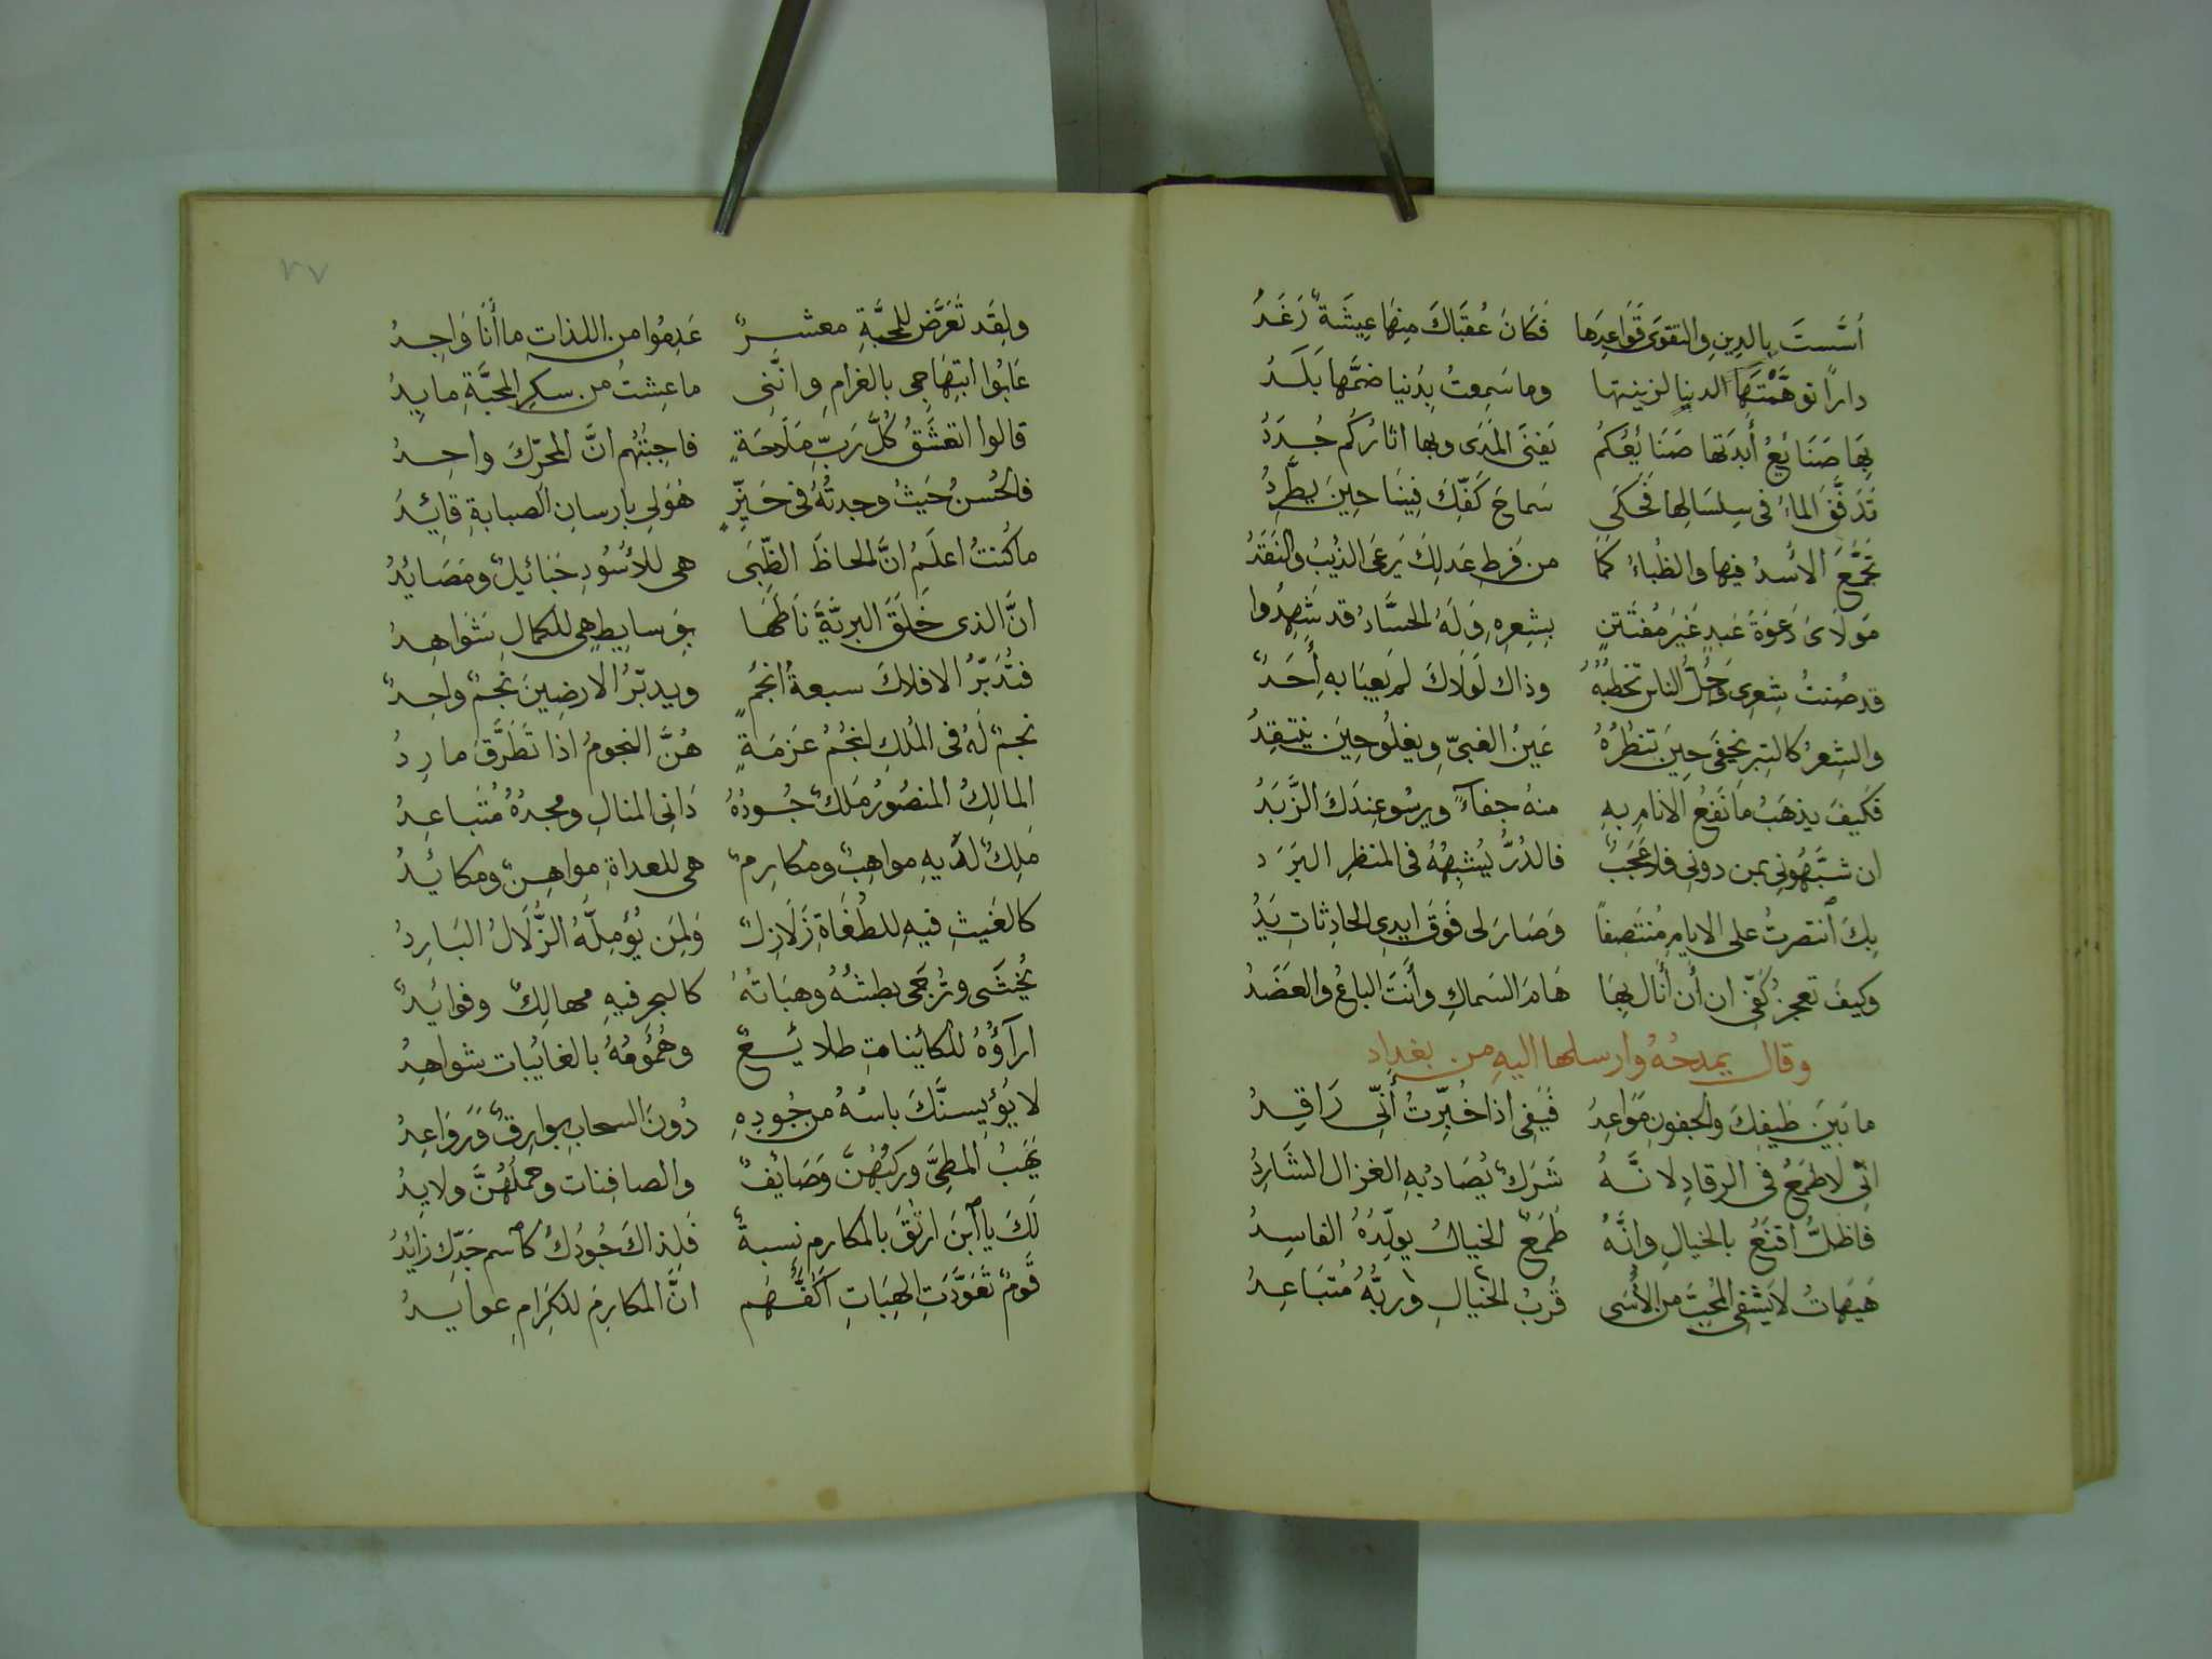 اُسَّستَ بالدِينِ والتقوَى قَوَاعِدَها فَكَانَ عُقبَاكَ مِنهَا عِيشَةٌ رَغَدُ
داراً توهَّمْتَهَا الدنيا لزينتها وما سَمِعتُ بِدُنيا ضمَّها بَلَدُ
بِهَا صَنَايَعُ أَبدَتها صَنَايِعُكمُ يَفنَى المَدَى وبها اثارُكُم جُدَدُ
تَدَفَّقَ الماءُ فى سِلسَالِها فَحَكَى سَماحَ كَفِّكَ فِينَا حِينَ يطَّرِدُ
تَجَمَّعَ الأُسدُ فيها والظُباءُ كَمَا من فَرطِ عَدلِكَ يَرعَى الذيبُ والنَقَدُ
مَولَاىَ دَعوَةَ عَبدٍ غَيرَ مُفتَتِنٍ بِشِعرِهِ وَلَهُ الحسَّادُ قد شَهِدُوا
قد صُنتُ شِعرِى وَجُلُّ الناس تخطِبُهُ وذاك لَولَاكَ لم يَعبَا به أَحَدٌ
والشِعرُ كالتِبرِ يَخفَى حِينَ تنظُرُهُ عَينُ الغبىِّ ويغلُو حِينَ ينتَقِدُ
فَكيفَ يذهَبُ مَا نَفعُ الانامِ بهِ منهُ جفآءً ويرسُو عِندَكَ الزَّبَدُ
ان شبَّهُونِى بمن دونِى فلا عَجَبٌ فالدُرُّ يُشبِهُهُ فى المنظرِ البَرَد
بِكَ اَنتصرتُ على الايامِ مُنتَصِفاً وَصَارَ لى فَوقَ ايدِى الحادِثاتِ يَدُ
وكيفَ تعجزُ كَفِّى ان أَنَال بِهَا هَامَ السَماكِ وأنَتَ الباعُ والعَضَدُ
وقال يمدحُهُ وارسلها اليهِ من بغداد
ما بَينَ طَيفِكَ والجفونِ مَوَاعِدُ فَيَفِى اذا خُبِّرتُ أَنِّى رَاقِدُ
انِّى لَاطمَعُ فى الرقادِ لانَّهُ شَرَكٌ يُصَادُ بهِ الغزال الشَارِدُ
فاظلُّ اقنَعُ بالخيالِ وانَّهُ طَمَعٌ الخيالُ يولِّدُهُ الفاسِدُ
هَيهَاتُ لَايَشفِى المُحِبَّ من الأَسَى قُربُ الخيالِ وربُّهُ مُتَبَاعِدُ
٧٧
ولقد تَعَرَّض للمحبَّةِ معشرٌ عَدِمُوا من اللذات ما أَنَا وَاجِدُ
عَابُوا ابتِهَاجِى بالغرامِ وانَّنِى ما عِشتُ من سكرِ المحبَّةِ مايِدُ
قالوا اتعشَّقُ كُلَّ رَبِّ مَلَاحَةٍ فاجبتُهم انَّ المحرِّكَ واحِدُ
فالحُسنُ حَيثُ وجدتُهُ فى حَيِّزٍ هُوَ لى بارسانِ الصبابةِ قايِدُ
ما كُنتُ اعلَمُ انَّ الحاظَ الظِّبَى هى للأُسُودِ حَبَائيلٌ ومَصَايدُ
انَّ الذى خَلَقَ البريَّةَ نَاطَهَا بِوَسايِطٍ هِى للكمالِ شَوَاهِدُ
فتُدَبّرُ الافلاكَ سبعةُ انجُمٍ ويدبّرُ الارضِينَ نَجمٌ واحِدٌ
نجمٌ لَهُ فى المُلكِ انجُمُ عَزمَةٍ هُنَّ النجومُ اذا تَطَرَّقَ مارِدُ
المالِكُ المنصُورُ مَلكٌ جُودُهُ دَانِى المنالِ ومجدُهُ مُتَباعِدُ
مَلِكٌ لَدَيهِ مواهِبٌ ومكارِمٌ هى للعداةِ مواهِنٌ ومكايدُ
كالغَيثِ فيهِ للطُغَاةِ زَلَازِلٌ وَلِمَن يُؤَمِلُّهُ الزُّلَالُ البَارِدُ
يُخشَى ويُرجَى بطشُهُ وهبَاتُهُ كالبحرِ فيهِ مهالِكٌ وفوايدٌ
ارآؤُهُ للكاينات طلايعٌ وهُمُومُهُ بالغايبات شواهِدُ
لا يُؤيسنَّكَ باسُهُ من جُودِهِ دُونَ السحابِ بوارِقٌ وَرَوَاعِدُ
يَهَبُ المطِىَّ وركبُهُنَّ وَصَايفٌ والصافِنات وحملُهُنَّ ولايدُ
لَكَ يا اَبنَ ارتُقَ بالمكارمِ نِسبةٌ فَلِذَاكَ جُودُكَ كاَسم جَدِّك زَايدُ
قَومٌ تَعَوَّدَتِ الهِبَاتِ اكفُّهُم انَّ المكارِمَ للكِرَامِ عوايدُ